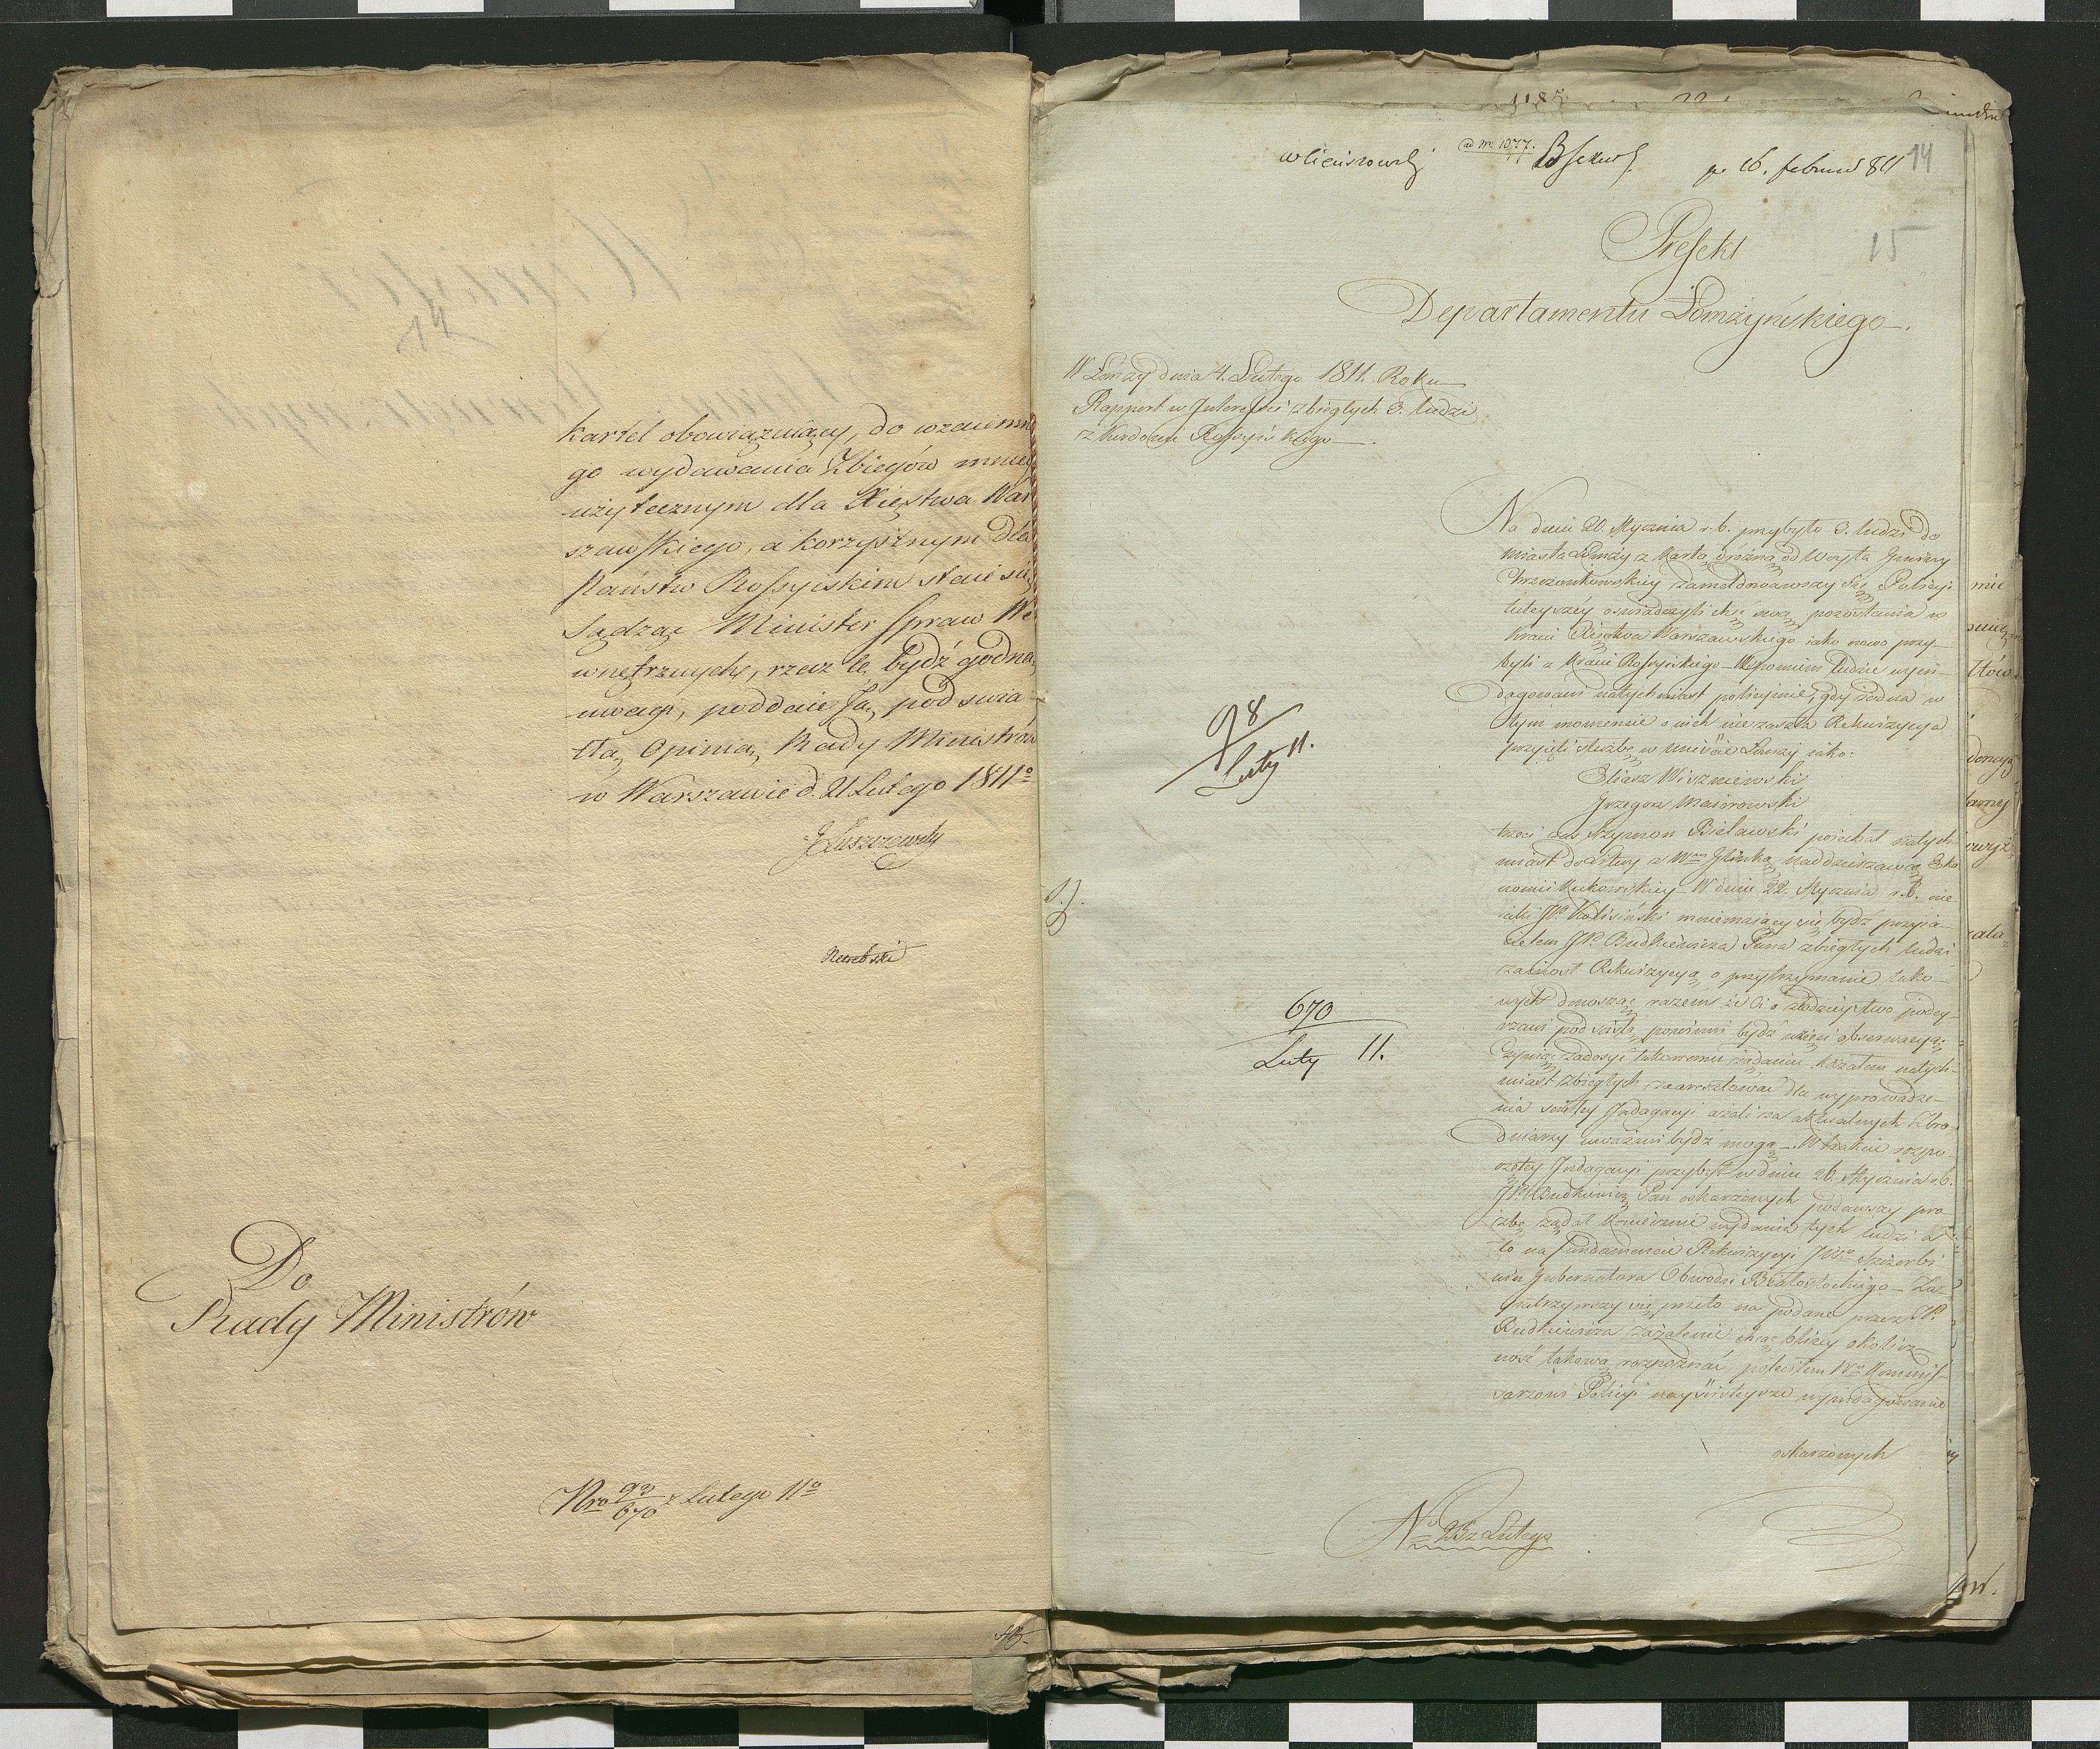 kartel obowiązuiący, do wzaiemne
go wydawania Zbiegów mniey
użytecznym dla Xięstwa War
szawskiego, a korzystnym dla
Państw Rossyiskim staie się
Sądząc Minister Spraw We
wnętrznych, rzecz tę bydź godną
uwagi, poddaie Ją, pod świa-
tłą Opinią Rady Ministrów
w Warszawie d. 21 Lutego 1811o
J Łuszczewski
Do
Rady Ministrów
Nro 98/670 z Lutego 11o
ad Nr 1077.
pr 16. februar 811
14
15
Prefekt
Departamentu Łomżyńskiego.
W Łomży dnia 4. Lutego 1811. Roku
Rapport w Interessie zbiegłych 3. ludzi
z Kordonu Rossyiskiego
Na dniu 20. Stycznia r. b. przybyło 3. ludzi do
miasta Łomży z Kartą drożną od Woyta Gminy
zameldowawszy się Policyi
tuteyszéy oświadczyli chęć swą pozostania w
Kraiu Xięstwa Warszawskiego iako nowo przy-
byli z Kraiu Rossyiskiego - Wspomnieni ludzie wyin-
dagowani natychmiast policyinie, gdy żadna w
tym momencie o nich nie zaszła Rekwizycya
przyięli służbę w mieście Łomży iako:
Eliasz Wiszniewski
Grzegorz Maiorowski
trzeci zaś Szymon Bielawski poiechał natych-
miast do Litwy z Wm Glinką naddzierżawcą Eko
nomii W dniu 22. Stycznia r. b. nie
iaki JP. Kolisiński mieniaiący się bydź przyia-
cielem JP. Budkiewicza Pana zbiegłych ludzi
zaniosł Rekwizycyą o przytrzymanie tako-
wych donosząc razem że Ci o złodzieystwo podey-
rzani pod ścisłą powinni bydź wzięci obserwacyą:
Czyniąc zadosyć takowemu żądaniu kazałem natych-
miast zbiegłych zaaresztować dla wyprowadze-
nia ścisłey Indagacyi azali za aktualnych Zbro-
dniarzy uważani bydź mogą - W trakcie rozpo
czętey Indagacyi przybył w dniu 26. Stycznia r. b.
JP. Budkiewicz Pan oskarżonych podawszy pro
żbę żądał koniecznie wydania tych ludzi a
to na fundamencie Rekwizycyi JWo Szczerbi
nin Gubernatora Obwodu Białostockiego - Za-
patrzywszy się przeto na podane przez JP.
Budkiewicza zażalenie chcąc bliżey okolicz-
ność takową rozpoznać, poleciłem Wo Kommis-
sarzowi Policyi nayściśleysze wyindagowanie
oskarżonych
98
Luty 11.
670
Luty 11.
No 252 Lutego